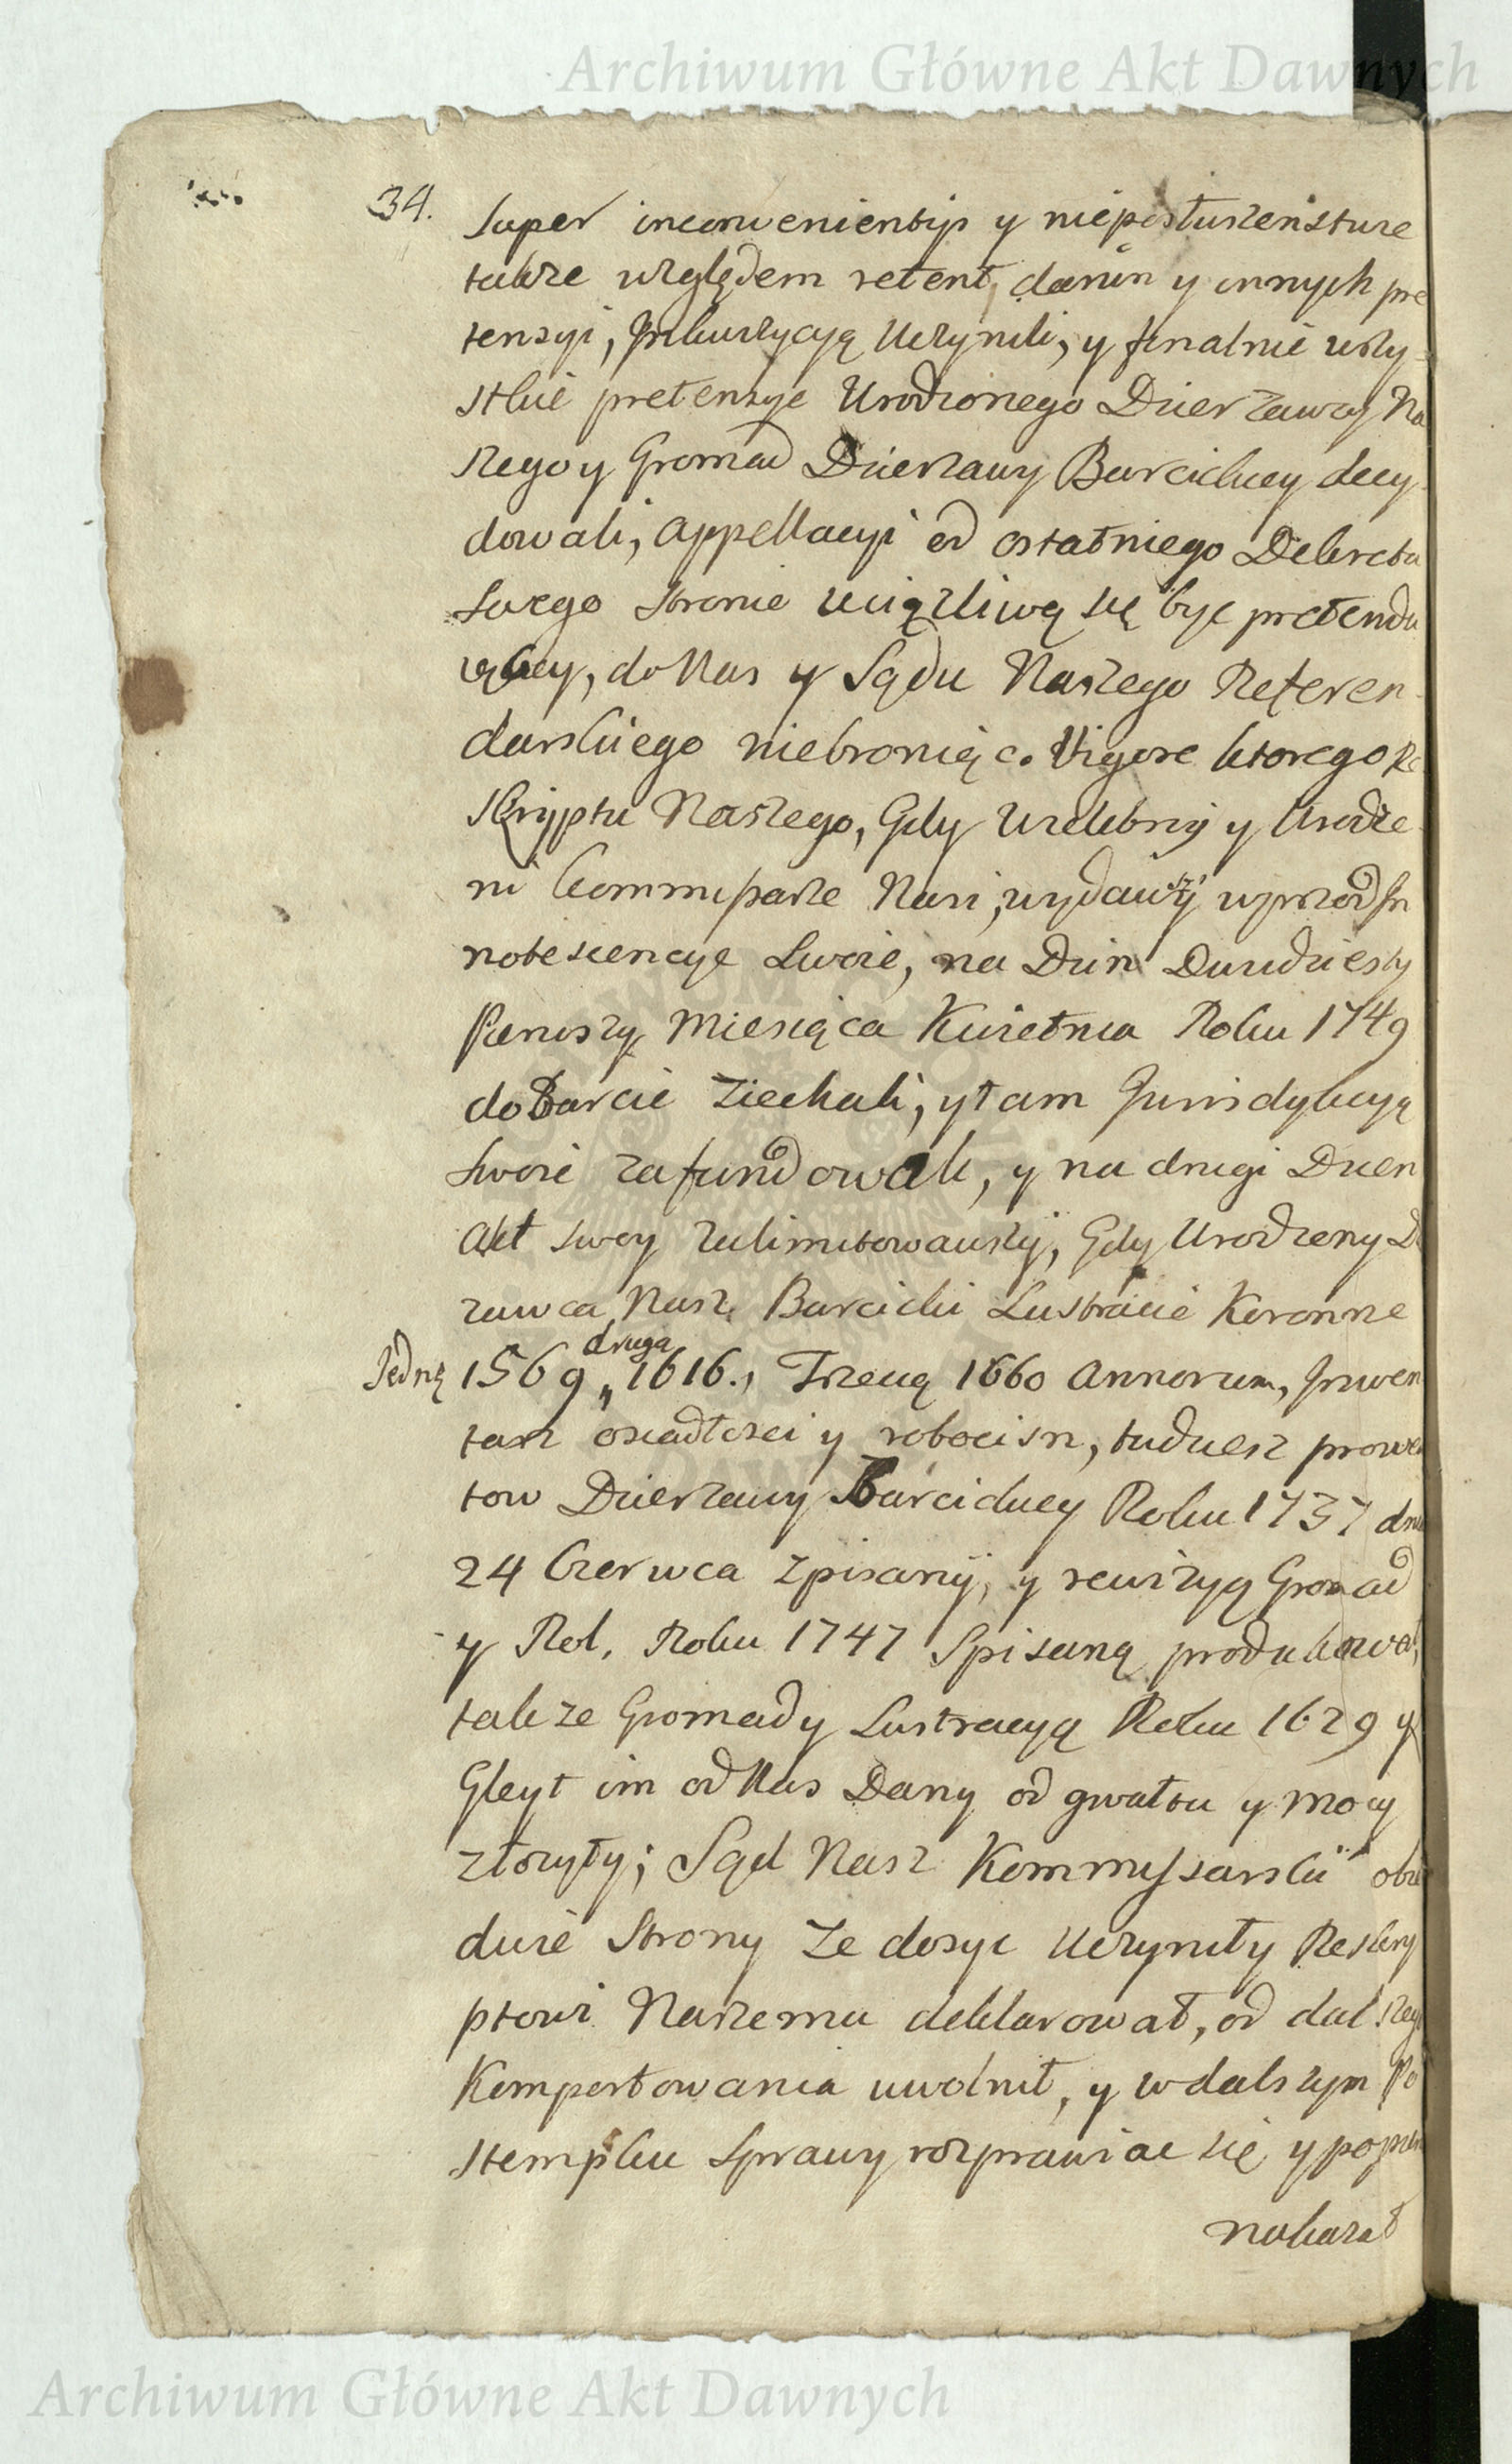 Archiwum Główne Akt Dawnych
34.
super inconvenientijs y nieposłuszeństwe
także względem retent, danin y innych pre
tensyi, Inkwizycyą Uczynili, y finalnie wszy-
stkie pretensye Urodzonego Dzierżawcy Na
szego y Gromad Dzierżawy Barcickiey decy
dowali, Appellacyi od ostatniego Dekretu
Swego stronie uciążliwą się być pretendu
iącey, do Nas y Sądu Naszego Referen-
darskiego niebroniąc. Vigore ktorego Re
skryptu Naszego, Gdy Wielebny y Urodze
ni Kommissarze Nasi, wydawszy wprzod In
notescencye Swoie, na Dzin Dwudziesty
Pierwszy Miesiąca Kwietnia Roku 1749
do Barcic ziechali, y tam Jurisdykcyą
Swoie zafundowali, y na drugi Dzien
Akt swoy zalimitowawszy, Gdy Urodzony D
zawca Nasz Barcicki Lustracie Koronne
Jedną 1569 „ druga 1616., Trzecią 1660 Annorum, Inwen
tarz osiadłosci y robocizn, tudziesz prowen
tow Dzierzawy Barcickiey Roku 1737 dnia
24 Czerwca zpisany, y rewizyą Gromad
y Rol, Roku 1747 Spisaną produkował,
także Gromady Lustracyą Roku 1629 y
Gleyt im od Nas Dany od gwałtu y mocy
złozyły; Sąd Nasz Kommyssarski obie
dwie Strony ze dosyc Uczyniły Reskry
ptowi Naszemu deklarował, od dalszego
Komportowania uwolnił, y w dalszym Po
stempku Sprawy rozprawiac się y popier
nakazał
Archiwum Główne Akt Dawnych